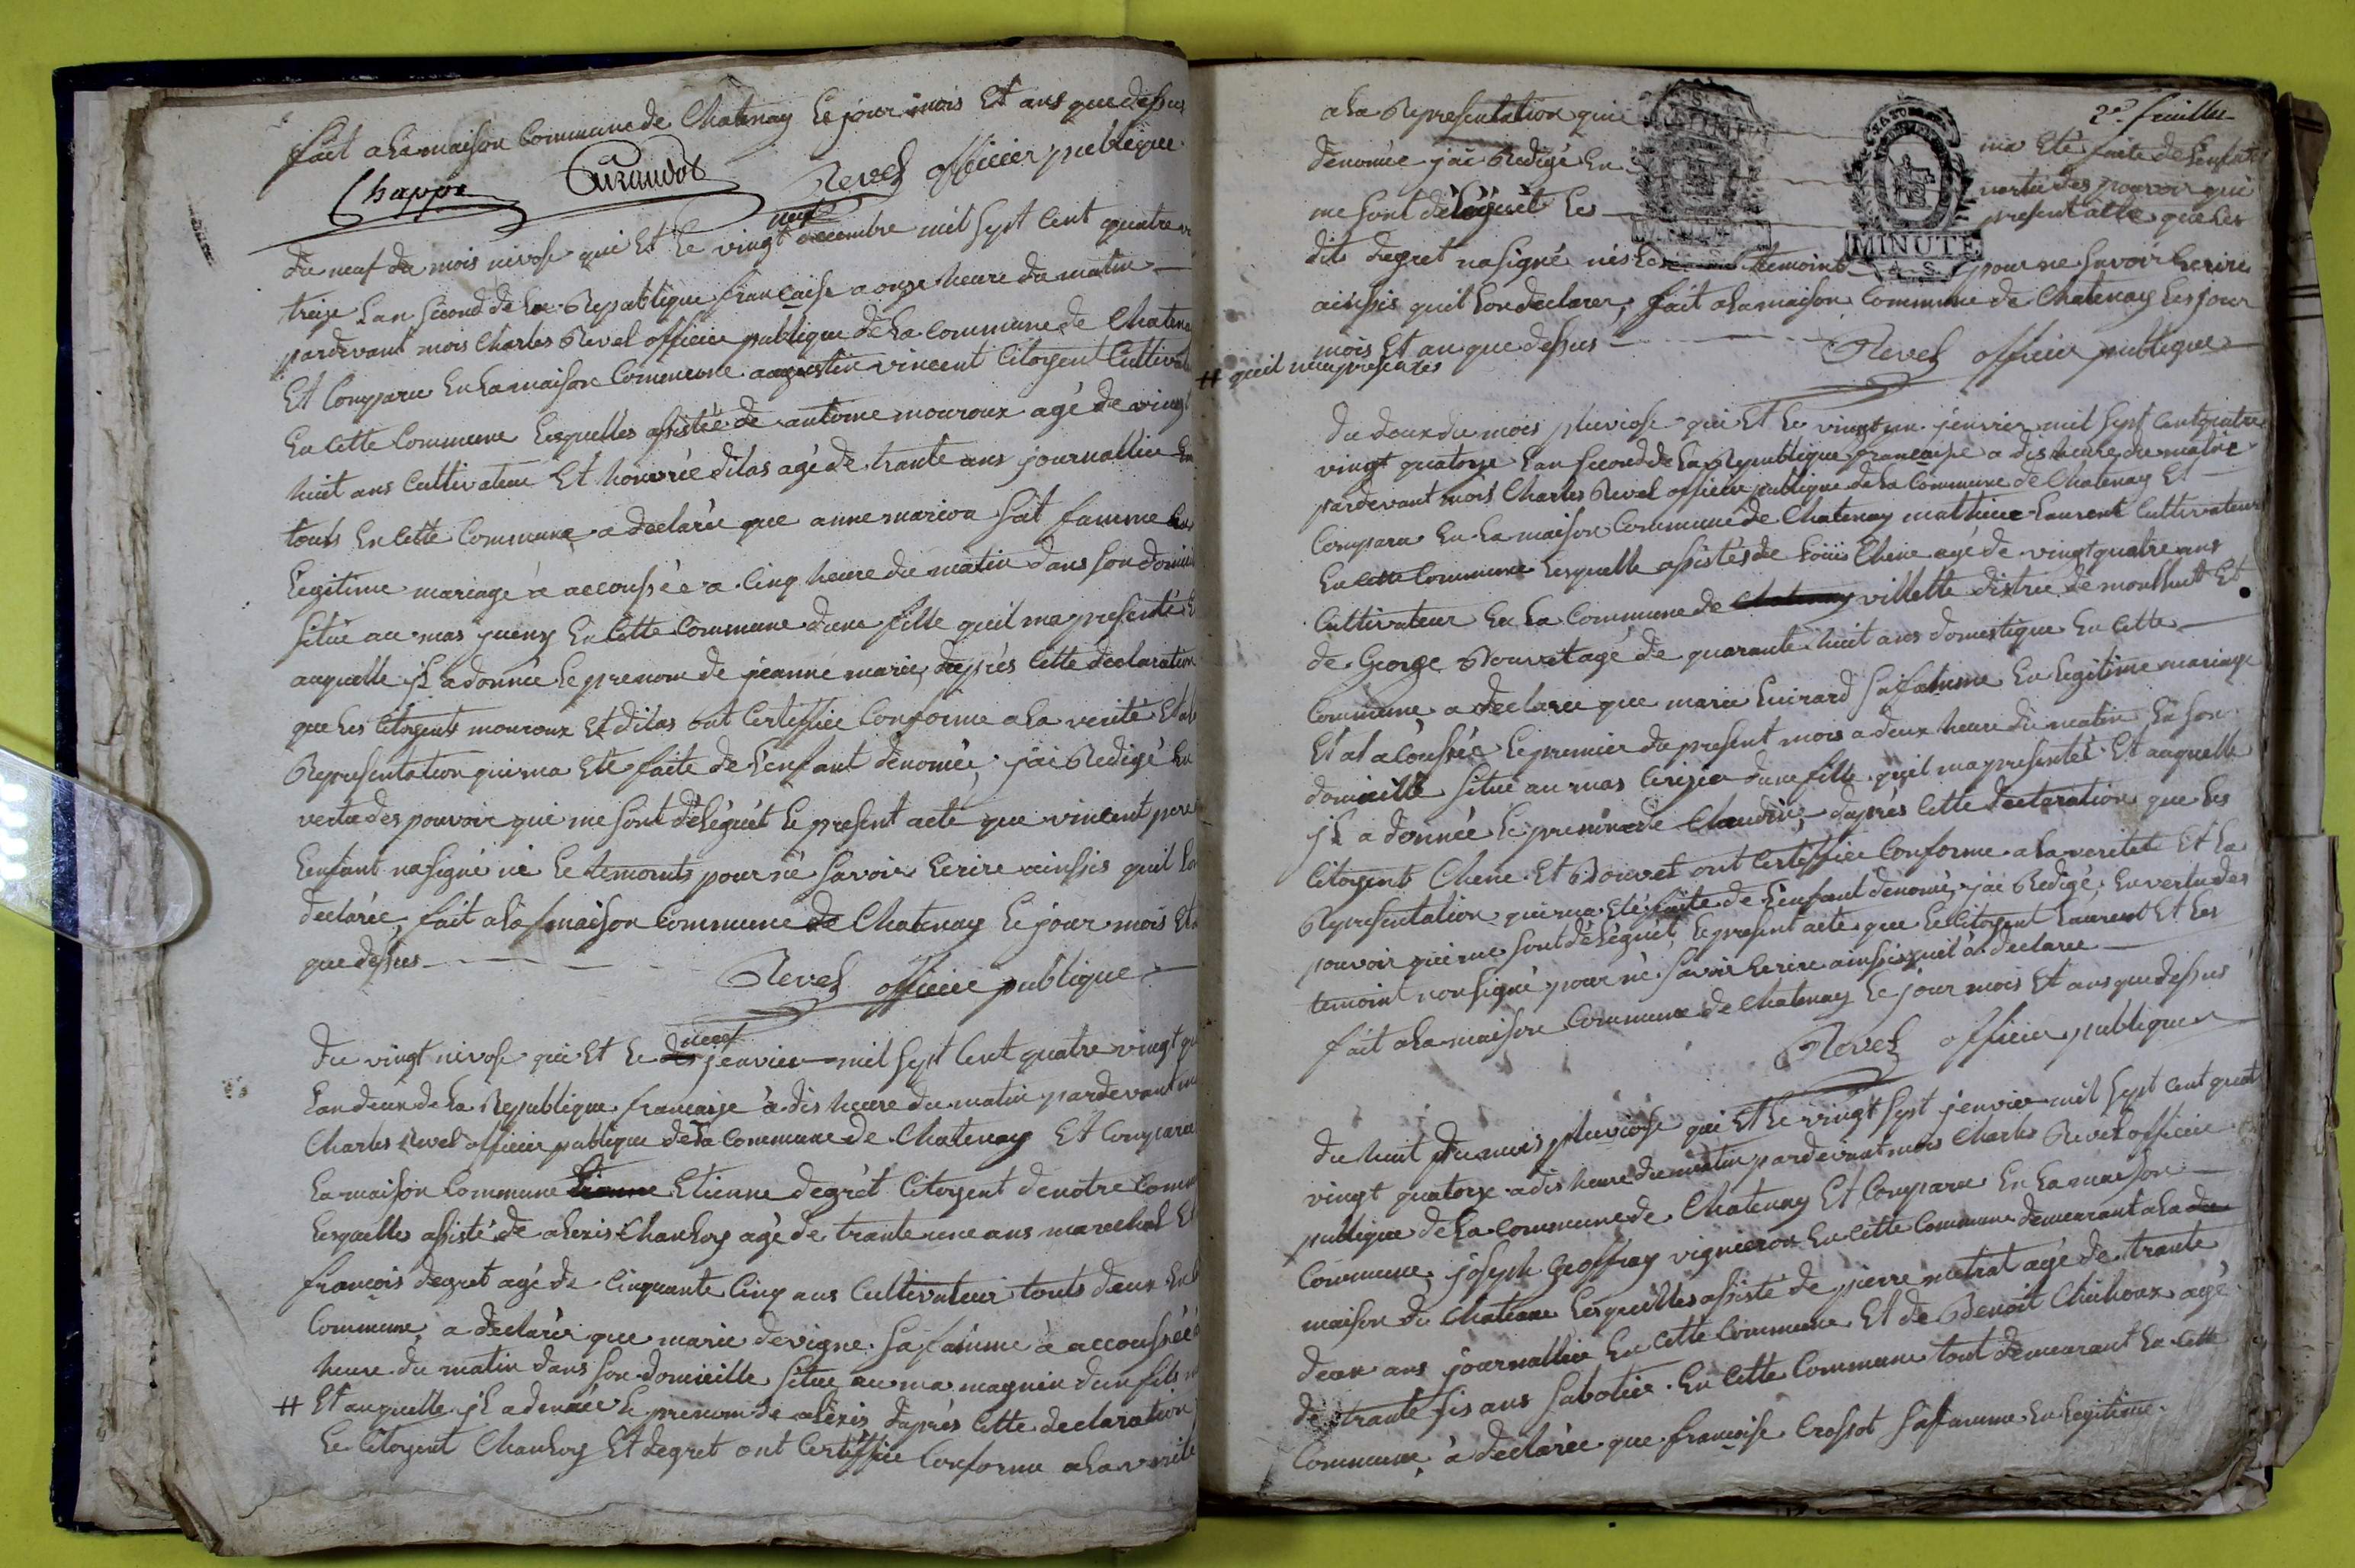 fait a la maison Commune de Chatenay le jour mois Et ans que dessus
Chappe Guraudot Revel officier publique
neuf
du neuf du mois nivose qui Et le vingt decembre mil sept Cent quatre
treize Lan second de La Republique francaise a onze heure du matin
pardevant mois Charles Revel officier publique de La Commune de Chatena
Et Comparu En La maison Commune augustin vincent Citoyent Cultivat
En Cette Commune Lesquelles assistée de antoine mouroux agé de vingt
huit ans Cultivateur Et honorée dilas agé de trante ans journallier En
touts En Cette Commune a declarée que anne marion sat famme En
Legitime mariage a accoussée a Cinq heure du matin dans son domici
situe au mas jueny En Cette Commune dune fille quil ma presenté E
auquelle jl a donnée Le prenom de jeanne marie, daprès Cette declaration
que Les Citoyents mouroux Et dilas ont Certiffiée Conforme a La verité Et a
Representation qui ma Eté faite de Lenfant denomée, jai Redigé En
vertu des pouvoir qui me sont déléguét Le present acte que vincent pere
Lenfant na signé ni Le temoints pour në savoir Ecrire ainssis quil Lo
declarée, fait a La maison Commune de Chatenay Le jour mois Et
que dessus
Revel officier publique
neuf
du vingt nivose qui Et Le janvier mil sept Cent quatre vingt qu
Lan deux de La Republique francaise à dis heure du matin pardevant
Charles Revel officier publique de La Commune de Chatenay Et Comparu
La maison Commune Etienne degrèt Citoyent de notre Comm
Lesquelle assisté de alexis Chanhoy agé de trante une ans marechal Et
françois degret agé de Cinquante Cinq ans Cultivateur touts deux En
Commune, a declarée que marie devigne sa famme à accoussée
heure du matin dans son domicille situe au ma magnin dun fils
# Et auquelle jl a donnée Le prenom de alexis daprès Cette declaration
Le Citoyent Chanhoy Et degret ont Certiffiée Conforme a La verité
2e feuillet
a La Representation qui ma Eté faite de Lenfant
denomée jai Redigé En vertu des pouvoir qui
me sont déléguét Les present acte que Les
MINUTE
dit degret na signé nis Le temoint pour ne savoir Ecrire
ainssis quil Lon declarer, fait a La maison Commune de Chatenay Les jour
mois Et an que dessus Revel officier publique
# quil
du deux du mois pluviose qui Et Le vingt un jenvier mil sept Cent quatre
vingt quatorze Lan second de La Republique francaise a dis heure du matin
pardevant mois Charles Revel officier publique de La Commune de Chatenay Et
Comparu En La maison Commune de Chatenay mathieu Laurent Cultivateur
En Cette Commune Lesquelle assistés de Louis Chene agé de vingt quatre ans
Cultivateur En La Commune de Chatenay villette distric de montluet Et
de George Bouvet agé de quarante huit ans domestique En Cette
Commune, a declarée que marie Guirard sa famme En Legitime mariage
Et at acoussée Le premier du present mois a deux heure du matin En son
domicille situe au mas Cerizier dune fille quil ma presentéé Et auquelle
jl a donnée Le prenom de Claudine, daprès Cette declaration que Les
Citoyents Chene Et Bouvet ont Certiffiée Conforme a La veritet Et La
Representation qui ma Eté faite de Lenfant denomé, jai Redigé, En vertu des
pouvoir qui me sont déléguét, Le present acte que Le Citoyent Laurent Et Les
temoint non signé pour në savoir Ecrire ainssis quil a declaree
fait a La maison Commune de Chatenay Le jour mois Et ans que dessus
Revel officier publique
du huit du mois pluviose qui Et Le vingt sept jenvier mil sept cent quat
vingt quatorze a dis heure du matin pardevant mois Charles Revel officier
publique de La Commune de Chatenay Et Comparu En La maison
Commune, joseph Geoffray vigneron En Cette Commune demeurant a La
maison du Chateaux Lesquelles assisté de pierre metrat agé de trante
deux ans journallier En Cette Commune Et de Benoit Chuhoux agé
de trante sis ans sabotier En Cette Commune tout demeurant En Cette
Commune, à declarée que francoise Crossot sa famme En Legitime